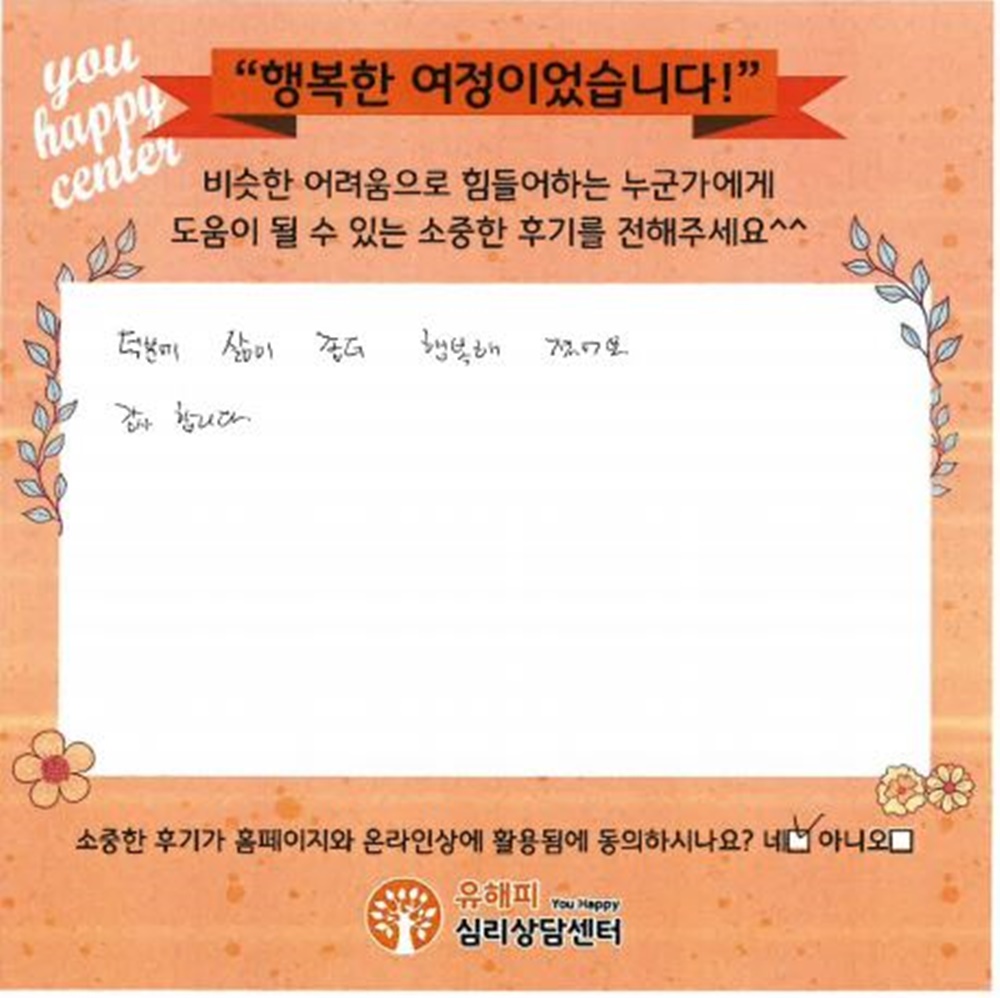 you
happy
center
“행복한 여정이었습니다!”
비슷한 어려움으로 힘들어하는 누군가에게
도움이 될 수 있는 소중한 후기를 전해주세요^^
덕분에 삶이 좀더 행복해 졌어요
감사 합니다.
소중한 후기가 홈페이지와 온라인상에 활용됨에 동의하시나요? 네 아니오
유해피 You Happy
심리상담센터